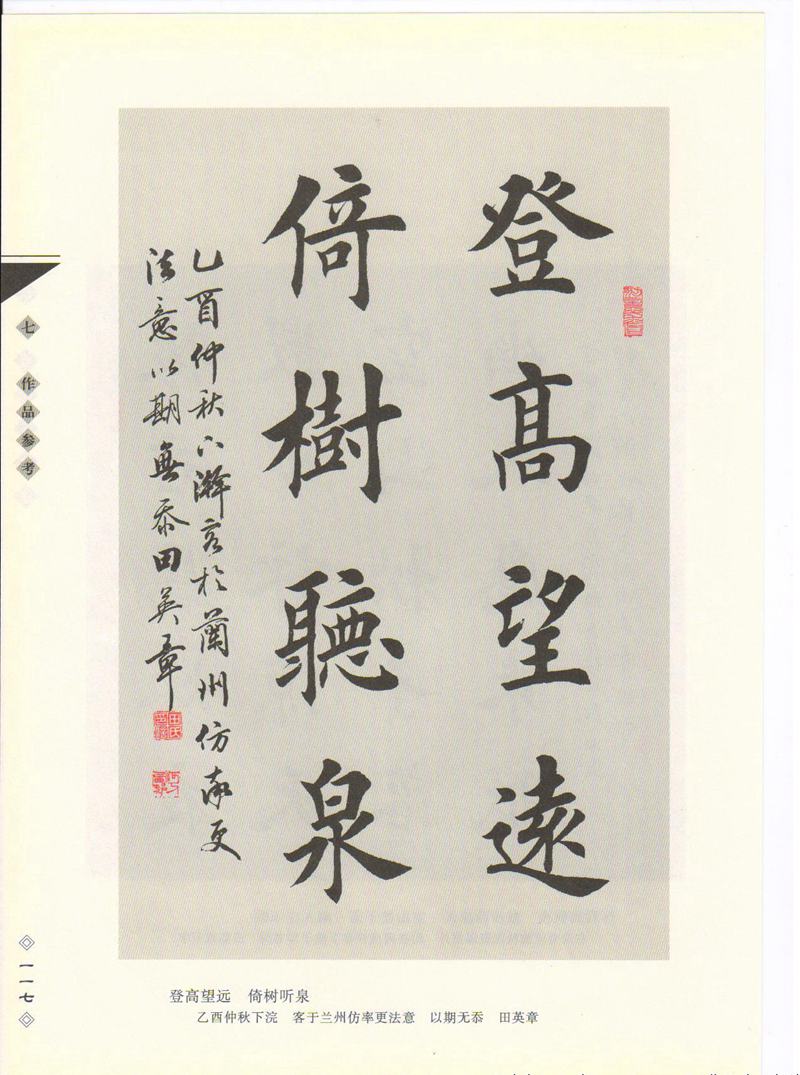 登髙望遠
倚樹聽泉
乙酉仲秋下澣客於蘭州仿率更
法意以期無忝田英章
七 作品参考
一一七
登高望远 倚树听泉
乙酉仲秋下浣 客于兰州仿率更法意 以期无忝 田英章